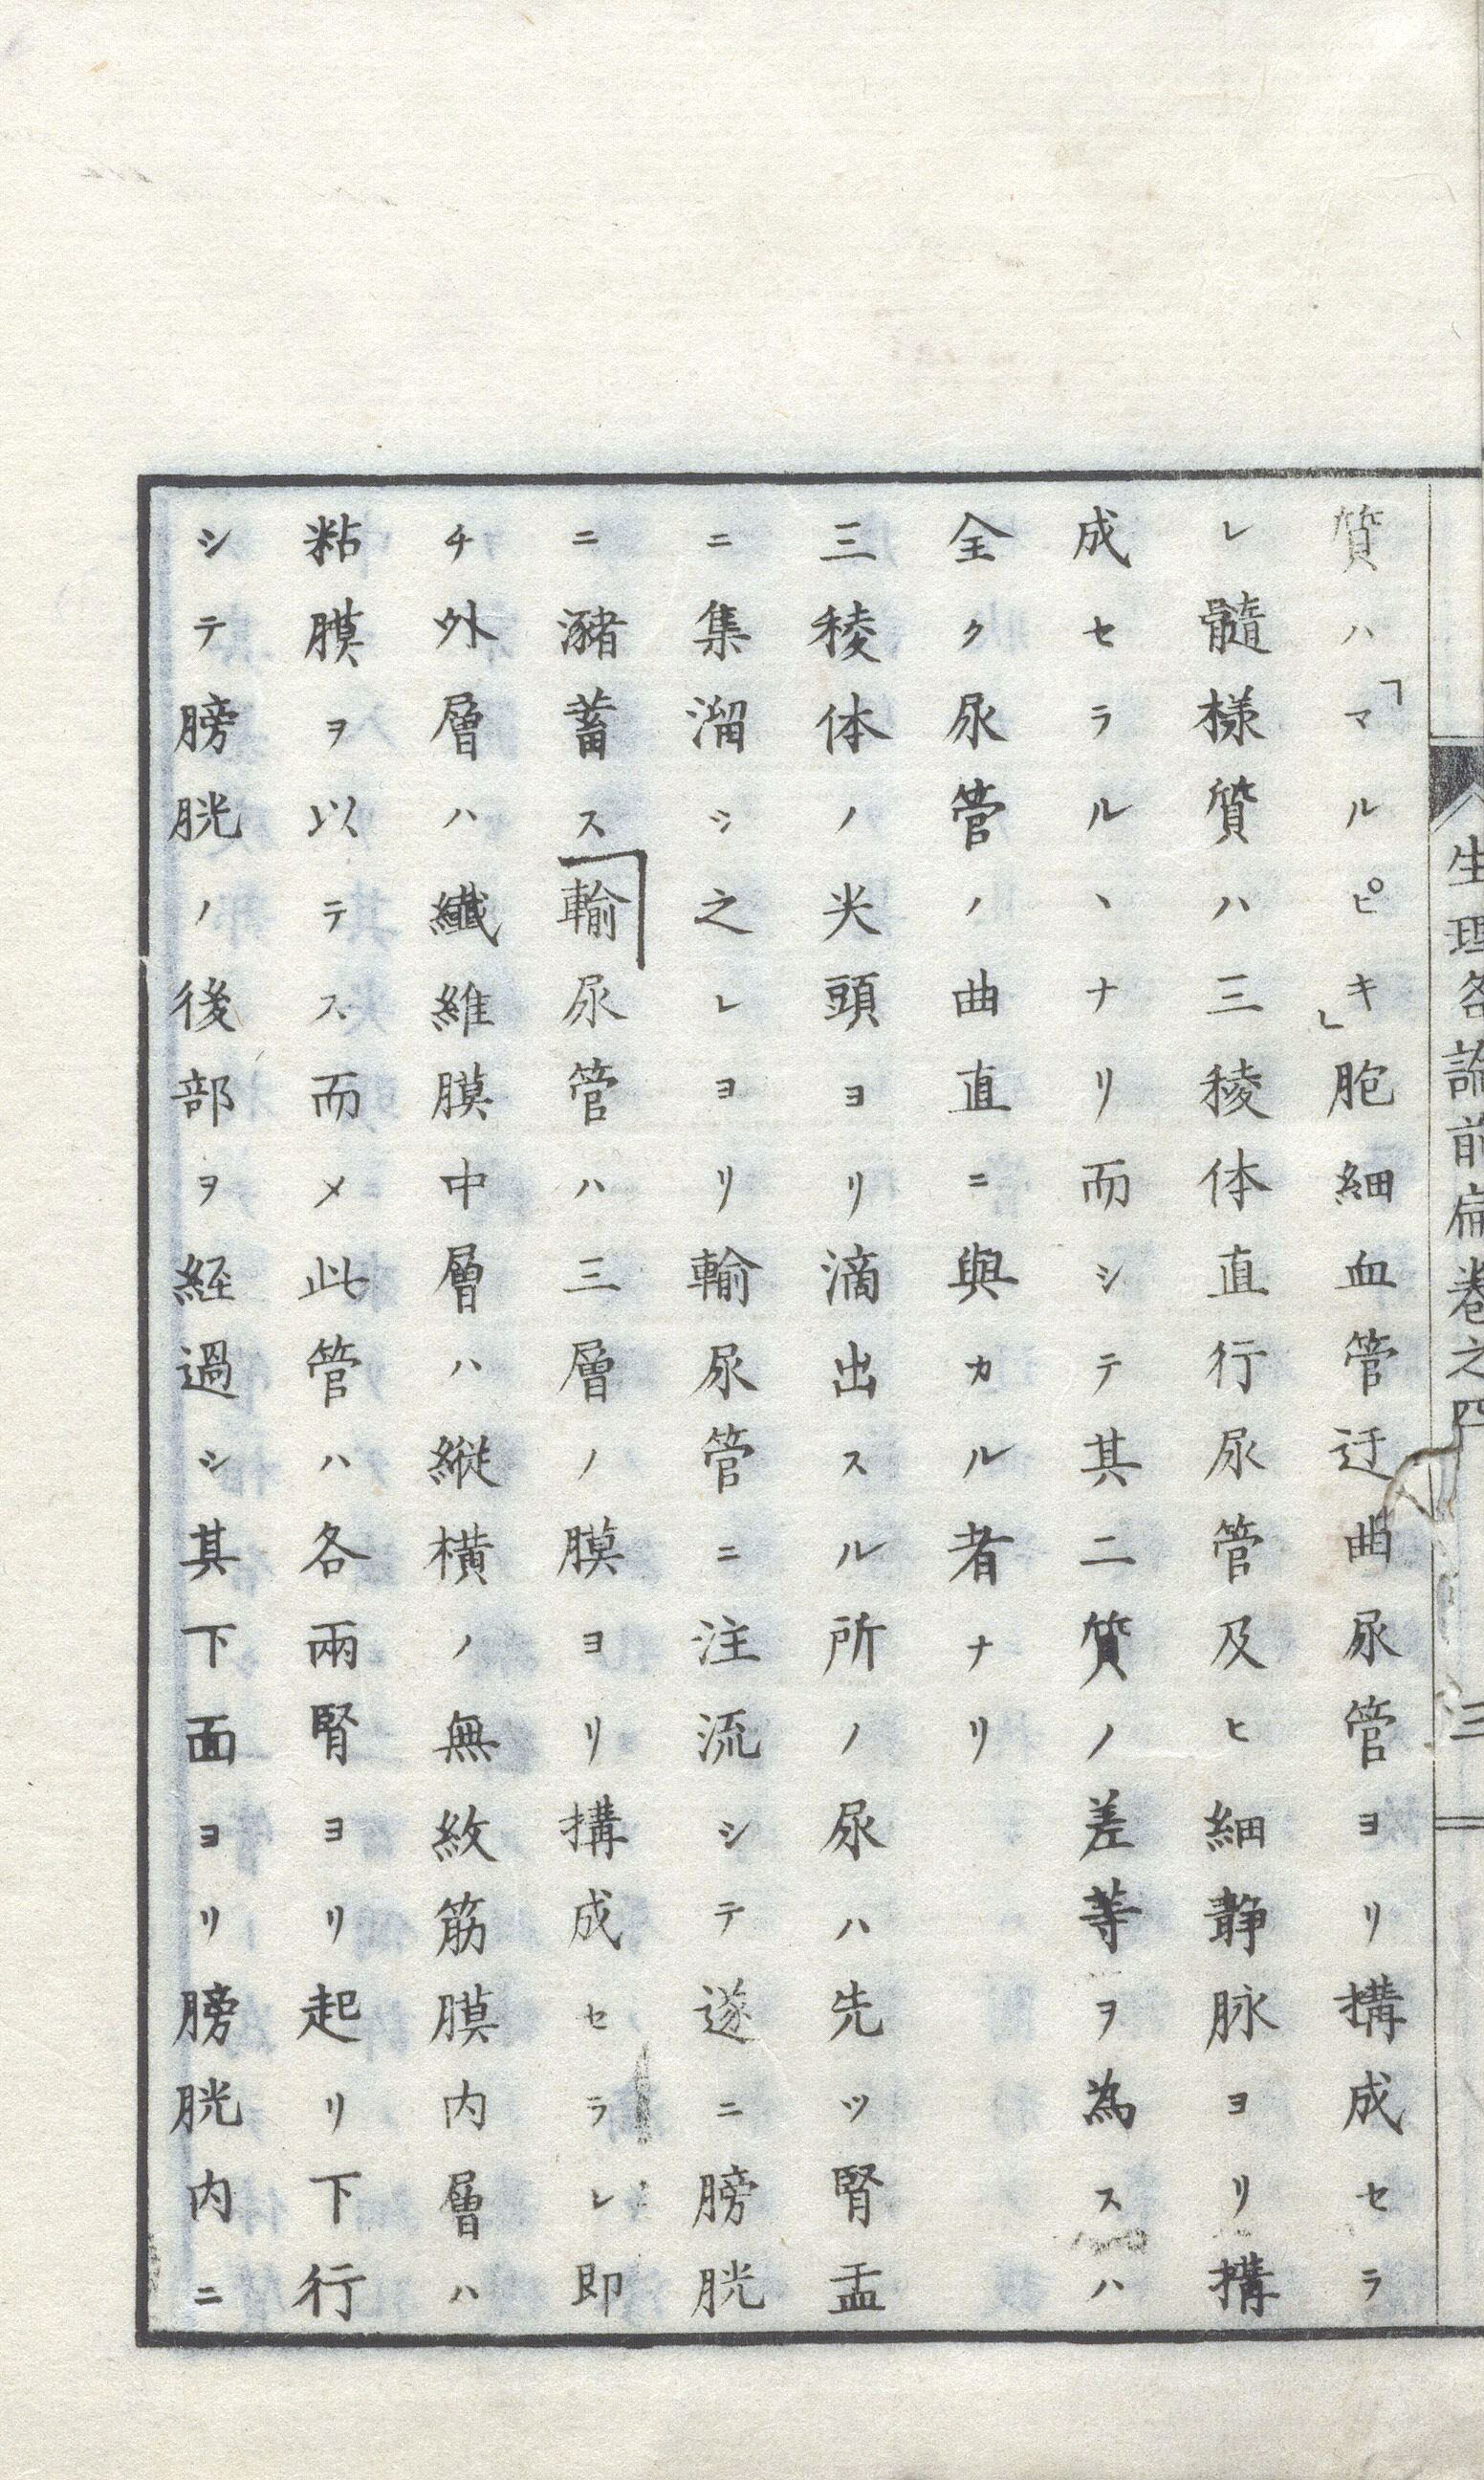 生理各論前扁巻之四 三
質ハ「マルピキ」胞細血管迂曲尿管ヨリ搆成セラ
レ髓様質ハ三稜体直行尿管及ヒ細静脉ヨリ搆
成セラルヽナリ而シテ其二質ノ差等ヲ為スハ
全ク尿管ノ曲直ニ與カル者ナリ
三稜体ノ尖頭ヨリ滴出スル所ノ尿ハ先ツ腎盂
ニ集溜シ之レヨリ輸尿管ニ注流シテ遂ニ膀胱
ニ瀦蓄ス輸尿管ハ三層ノ膜ヨリ搆成セラレ即
チ外層ハ纎維膜中層ハ縦横ノ無紋筋膜内層ハ
粘膜ヲ以テス而メ此管ハ各兩腎ヨリ起リ下行
シテ膀胱ノ後部ヲ経過シ其下面ヨリ膀胱内ニ